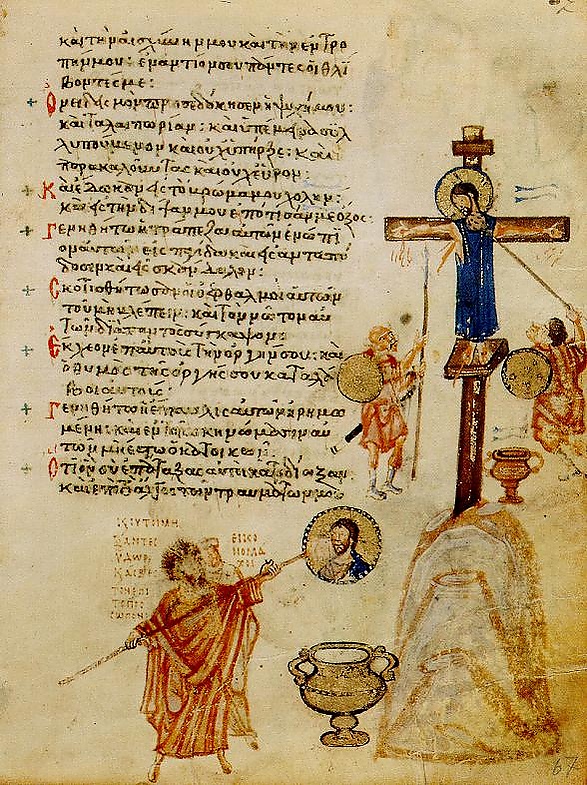 καὶ τὴν αἰσχύνην μου καὶ τὴν ἐντρο
πήν μου : ἐναντίον σου πάντες οἱ θλί
βοντές με :
προσεδόκησεν ἡ ψυχή μου :
καὶ ταλαιπωρίαν : καὶ ὑπέμεινα συλ
λυπούμενον καὶ οὐχ ὑπῆρξε : καὶ
παρακαλοῦντας καὶ οὐχ εὗρον :
Καὶ ἔδωκαν εἰς τὸ βρῶμά μου χολήν :
καὶ εἰς τὴν δίψαν μου ἐπότισάν με ὄξος :
Γενηθήτω ἡ τράπεζα αὐτῶν ἐνώπι
ον αὐτῶν εἰς παγίδα καὶ εἰς ἀνταπό
δοσιν καὶ εἰς σκάνδαλον :
Σκοτισθήτωσαν οἱ ὀφθαλμοὶ αὐτῶν
τοῦ μὴ βλέπειν : καὶ τὸν νῶτον αὐ
τῶν διαπαντὸς σύγκαμψον :
Ἔκχεον ἐπ αὐτοὺς τὴν ὀργήν σου : καὶ
ὁ θυμὸς τῆς ὀργῆς σου καταλά
βοι αὐτούς :
Γενηθήτω ἡ ἔπαυλις αὐτῶν ἠρημω
μένη : καὶ ἐν τοῖς σκηνώμασιν αὐ
τῶν μὴ ἔστω ὁ κατοικῶν :
Ὅτι ὃν σὺ ἐπάταξας αὐτοὶ κατεδίωξαν :
καὶ ἐπὶ τὸ ἄλγος τῶν τραυμάτων μου
ΥΔΩΡ
ΕΙΚΟ
ΝΟΜΑ
ΧΟΙ
67